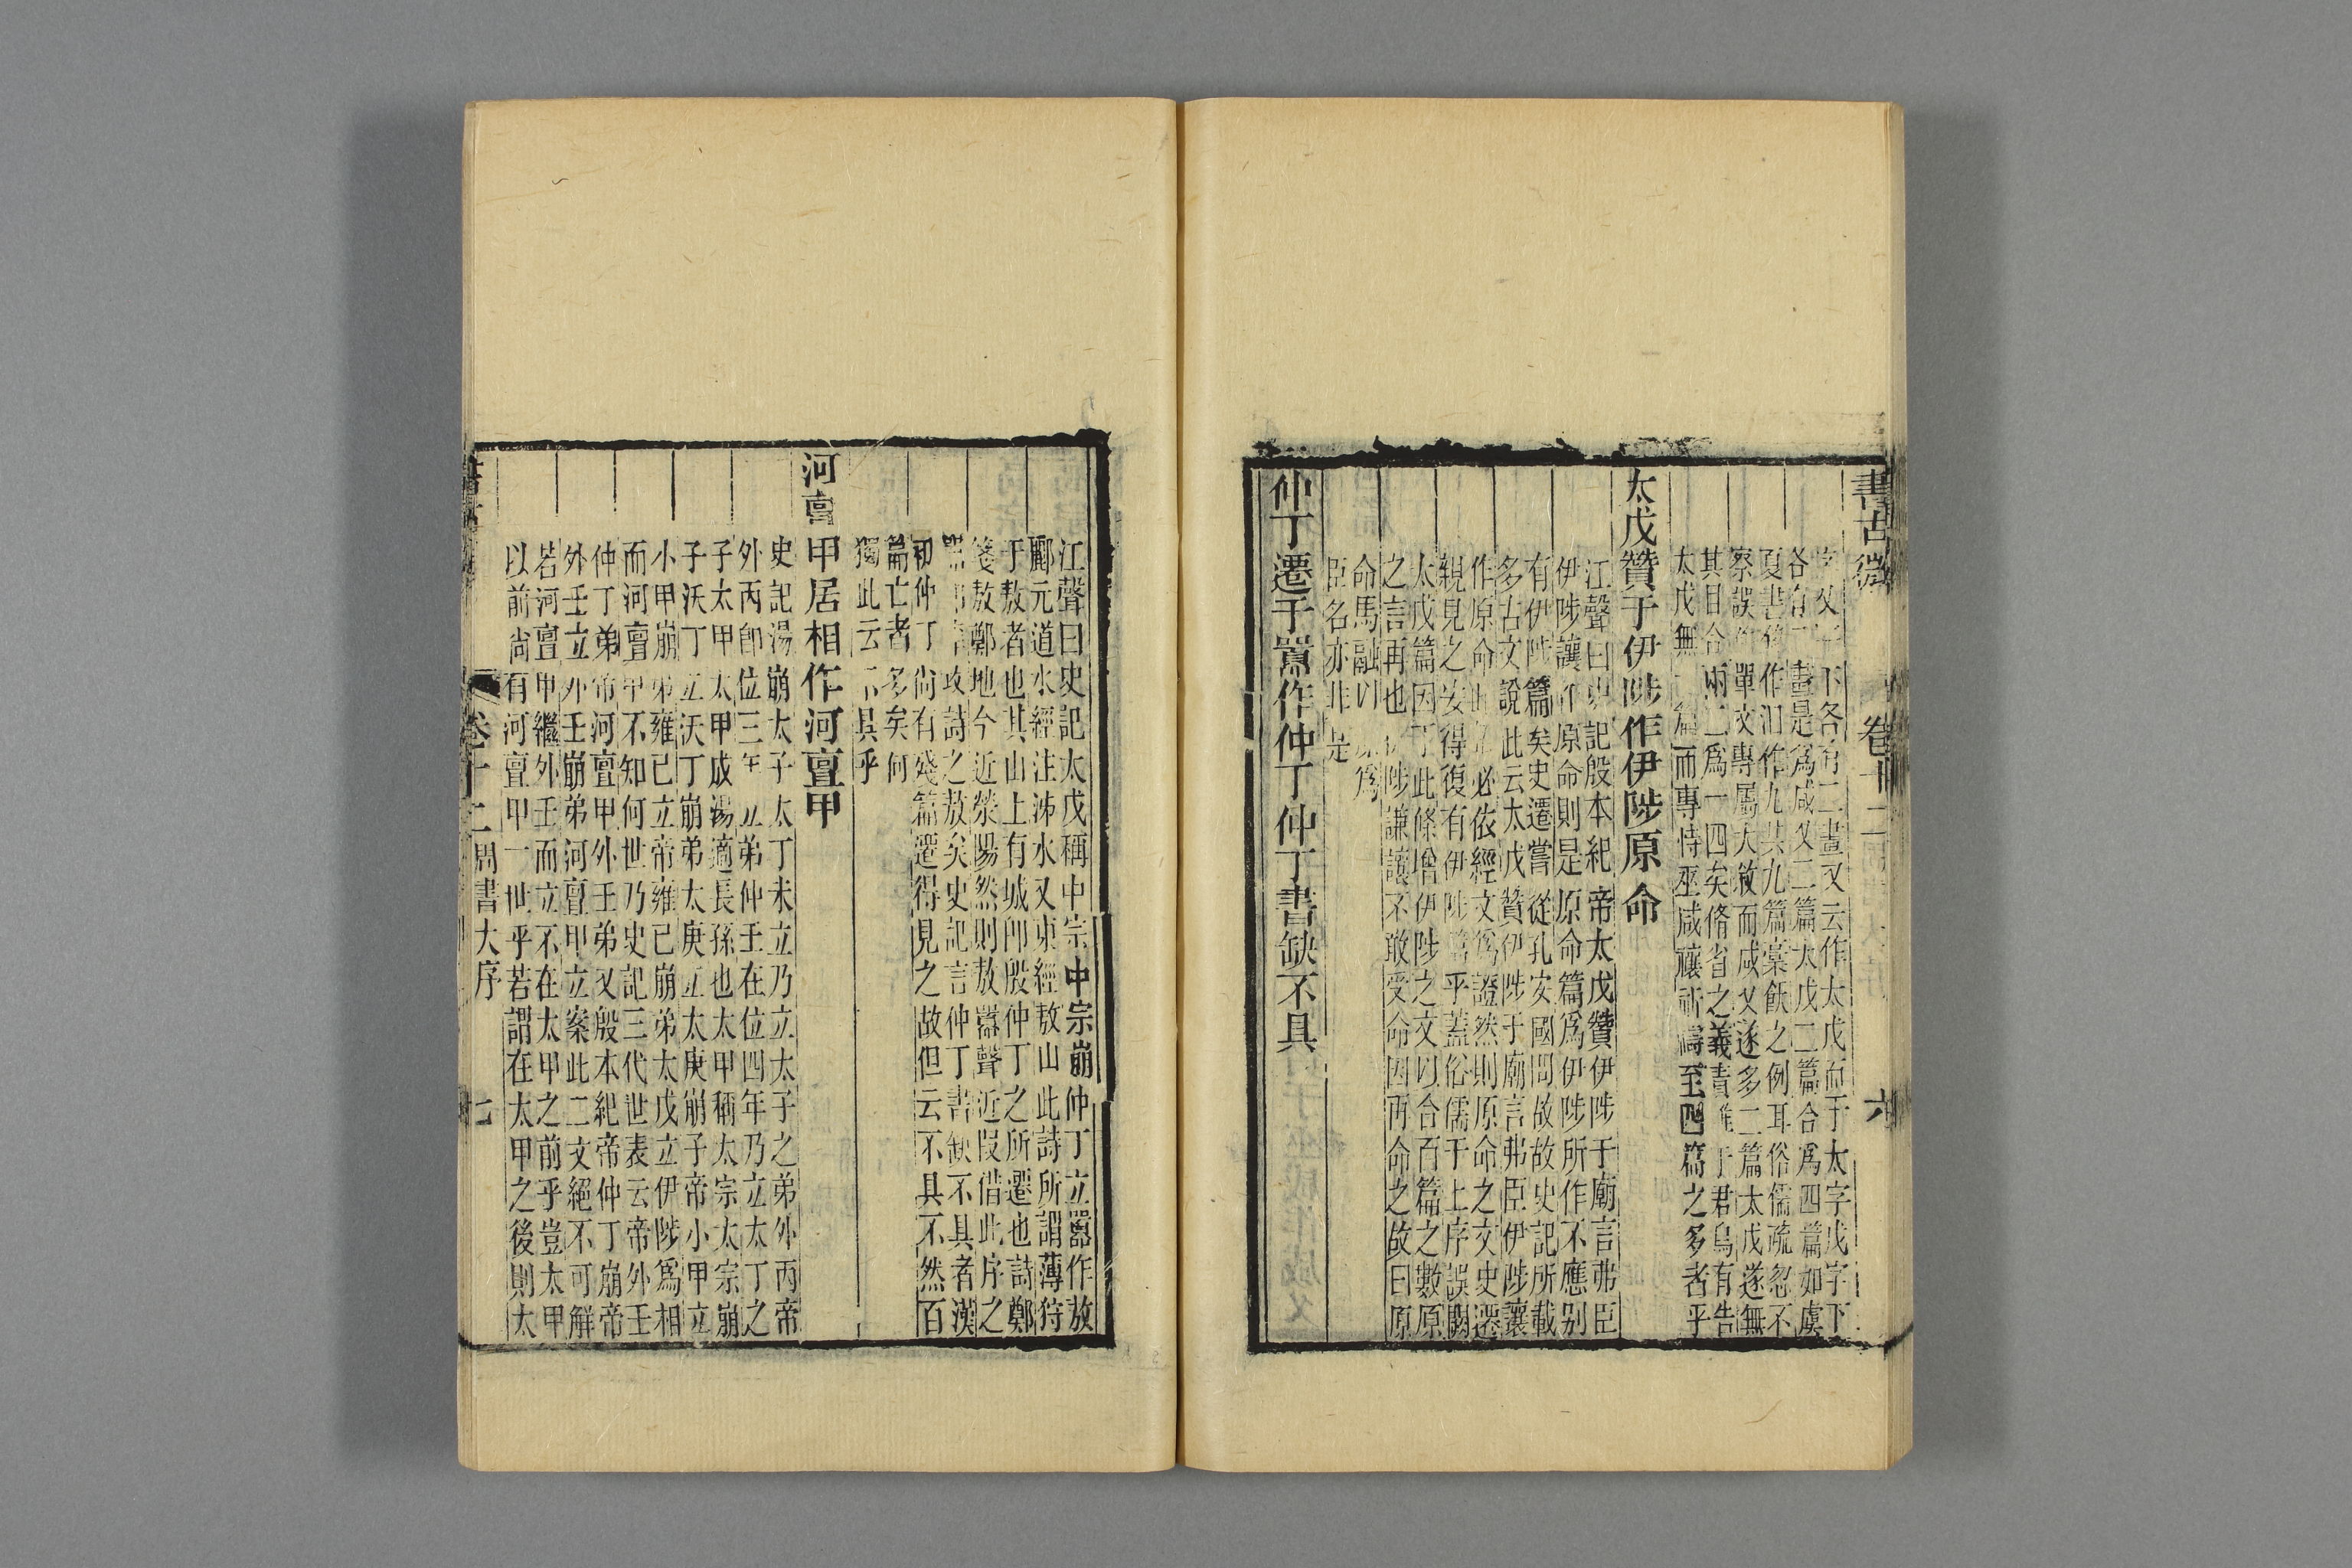 書古微 卷十二 六
下各有二畫又云作太戊而于太字戊字下
各有二畫是爲咸乂二篇太戊二篇合爲四篇如虞
夏書作汩作九共九篇槀飫之例耳俗儒疏忽不
察誤 單文專屬大敘而咸乂遂多二篇太戊遂無
其目合兩亡爲一四矣脩省之義責 于君烏有告
太戊無 篇而專恃巫咸禳祈禱至四篇之多者乎
太戊贊于伊陟作伊陟原命
江聲曰史記殷本紀帝太戊贊伊陟于廟言弗臣
伊陟讓作原命則是原命篇爲伊陟所作不應别
有伊陟篇矣史遷嘗從孔安國問故故史記所載
多古文說此云太戊贊伊陟于廟言弗臣伊陟讓
作原命 必依經文爲證然則原命之文史遷
親見之安得復有伊陟篇乎蓋俗儒于上序誤闕
太戊篇因于此條增伊陟之文以合百篇之數原
之言再也 陟謙讓不敢受命因再命之故曰原
命馬融以原爲
臣名亦非是
仲丁遷于囂作仲丁仲丁書缺不具
江聲曰史記太戊稱中宗中宗崩仲丁立囂作敖
酈元道水經注沛水又東經敖山此詩所謂薄狩
于敖者也其山上有城卽殷仲丁之所遷也詩鄭
箋敖鄭地今近滎陽然則敖囂聲近叚借此序之
囂 攻詩之敖矣史記言仲丁書缺不具者漢
初仲丁尙有殘篇遷得見之故但云不具不然百
篇亡者多矣何
獨此云不具乎
河亶甲居相作河亶甲
史記湯崩太子太丁未立乃立太子之弟外丙帝
外丙卽位三年 立弟仲壬在位四年乃立太丁之
子太甲太甲成湯適長孫也太甲稱太宗太宗崩
子沃丁立沃丁崩弟太庚立太庚崩子帝小甲立
小甲崩弟雍已立帝雍已崩弟太戊立伊陟爲相
而河亶甲不知何世乃史記三代世表云帝外壬
仲丁弟帝河亶甲外壬弟又殷本紀帝仲丁崩帝
外壬立外壬崩弟河亶甲立案此二文絕不可解
若河亶甲繼外壬而立不在太甲之前乎豈太甲
以前尙有河亶甲一世乎若謂在太甲之後則太
卷十二周書大序 七